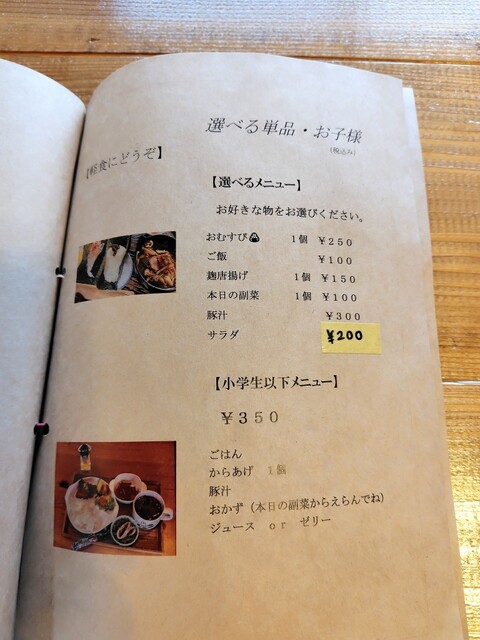 選べる単品・お子様
(税込み)
【軽食にどうぞ】
【選べるメニュー】
お好きな物をお選びください。
おむすび🍙 1個 ¥250
ご飯 ¥100
麹唐揚げ 1個 ¥150
本日の副菜 1個 ¥100
豚汁 ¥300
サラダ ¥200
【小学生以下メニュー】
¥350
ごはん
からあげ 1個
豚汁
おかず(本日の副菜からえらんでね)
ジュース or ゼリー